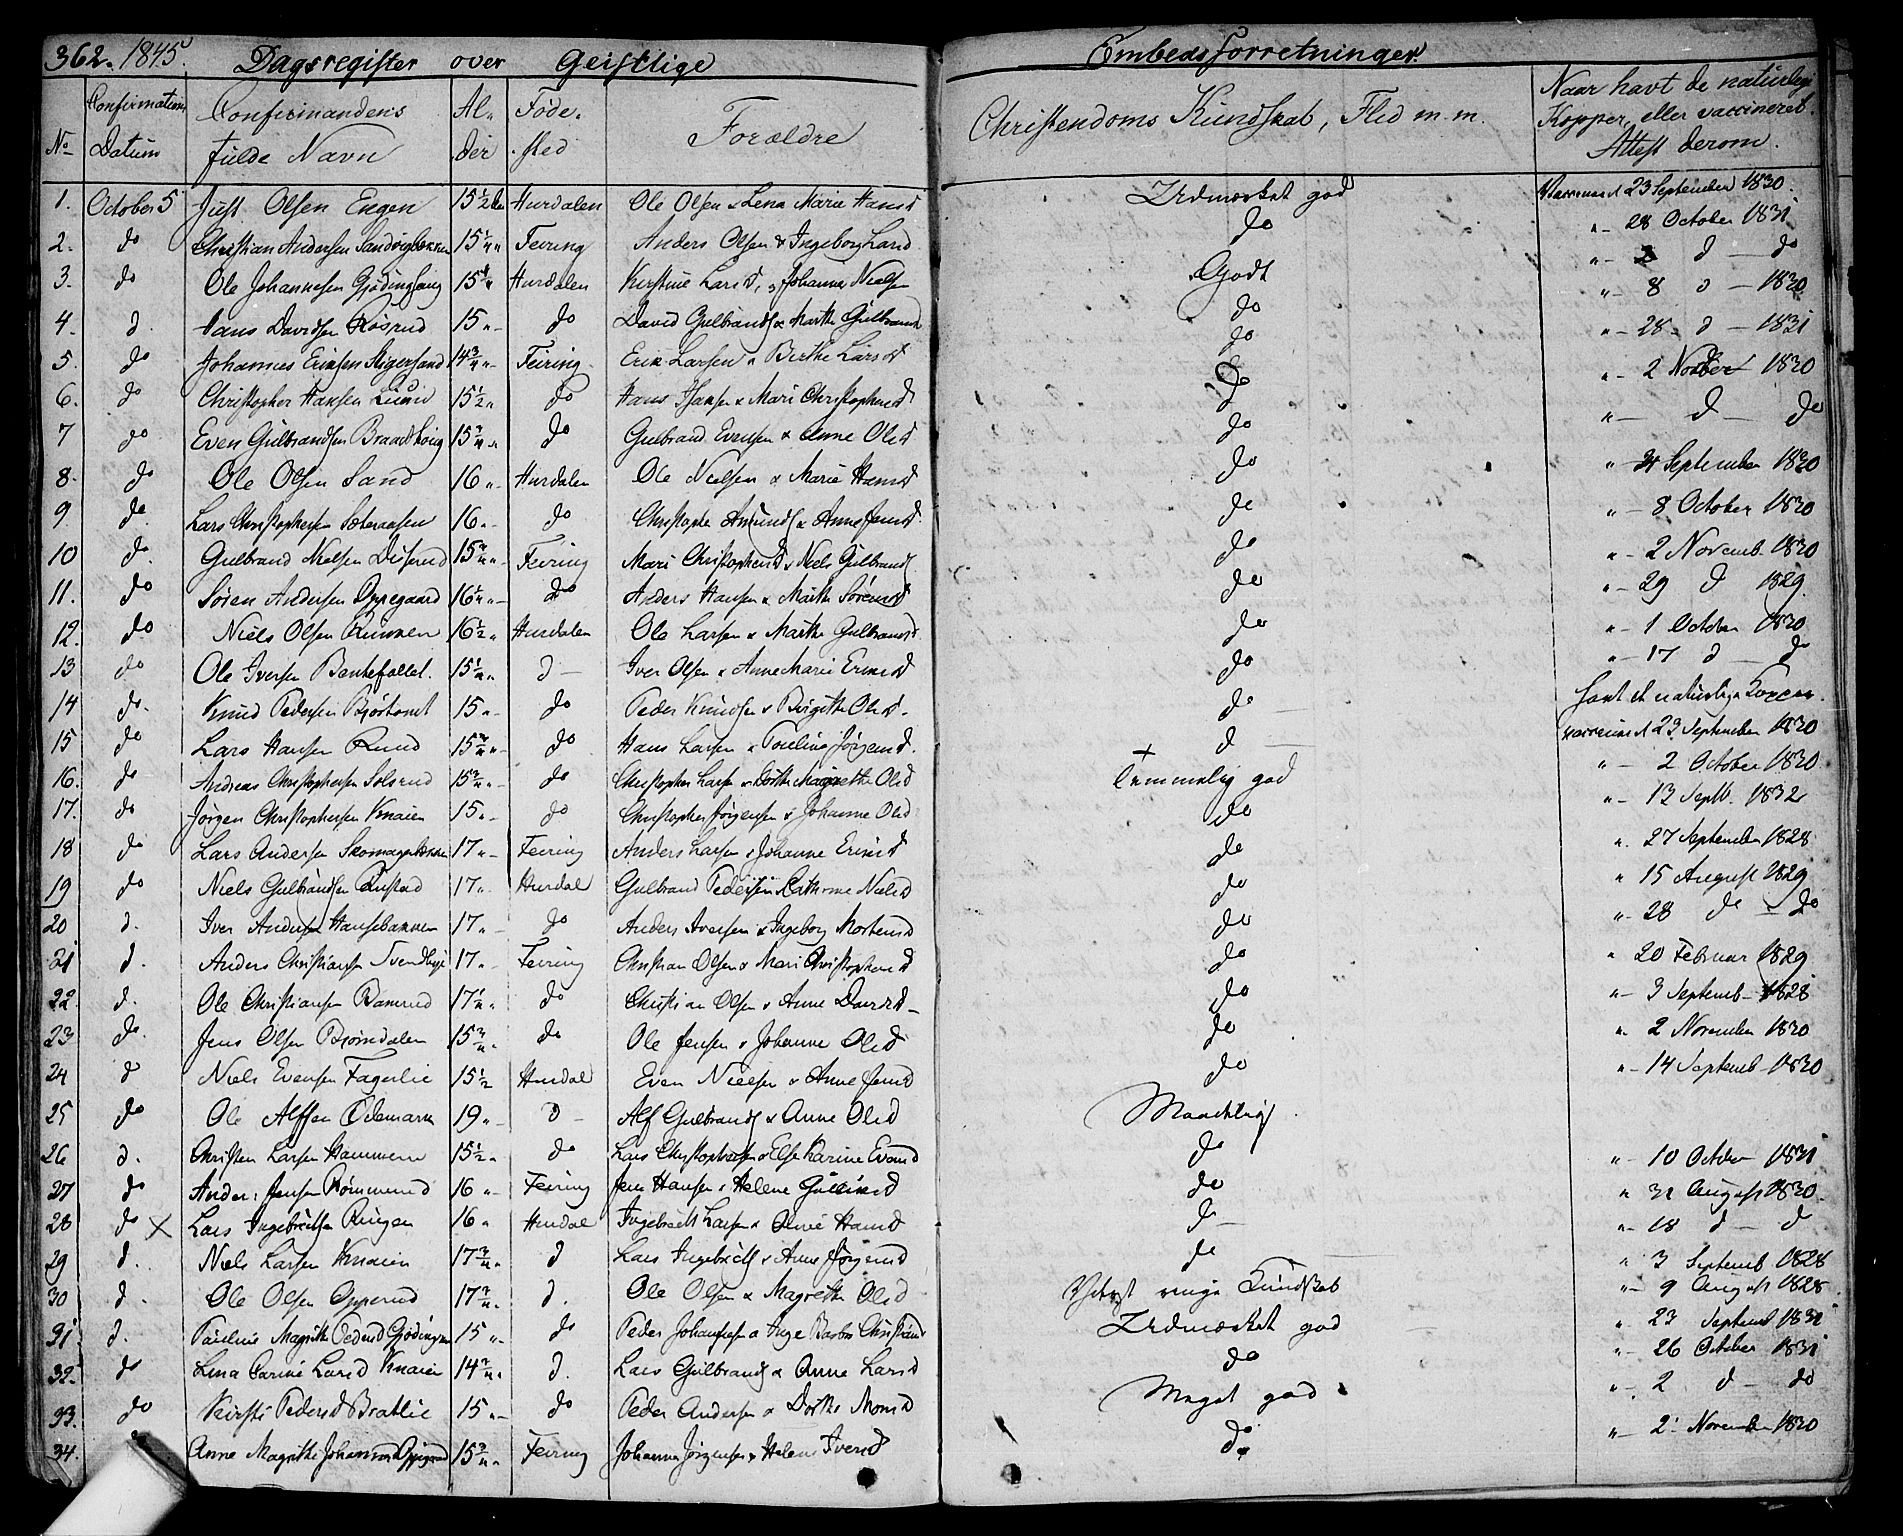 362. 1845. Dagsregister over Geistlige Embedsforretninger.
No Confirmations Datum Confirmandens fulde Navn Al- der Føde- sted Forældre Christendoms Kundskab, Flid m. m. Naar havt de naturlige Kopper, eller vaccineret. Attest derom.
1. October 5 Just Olsen Engen 15 1/2 Hurdalen Ole Olsen & Lena Marie Hansd Udmærket god Vaccineret 23 September 1830.
2. do Christian Andersen 15 1/4 " Feiring Anders Olsen & Ingeborg Larsd do " - 28 October 1831
3. do Ole Johannesen 15 Hurdalen Kirstine Larsd, & Johannes Nielsen Godt " - 2 d - do
4. d. Hans Davidsen Røsrud 15 " - do David Gulbrands & Marthe Gulbrandsd do " - 8 d - 1830
5. do Johannes Eriksen Stigersand 14 3/4 " - Feiring Erik Larsen & Berthe Larsd do " - 28 - d - 1831
6. do Christopher Hansen Lund 15 1/2 " do Hans Hansen & Mari Christophersd do " - 2 1830
7 do Even Gulbrandsen 15 3/4 " - do Gulbrand Evensen & Anne Olsd do " - d - do
8. do Ole Olsen Sand 16 " - Hurdalen Ole Nielsen & Marie Hansd do " - September 1830
9 do. Lars Christophersen 16 " - do Christopher Amunds & Anne Jensd do " - 8 October 1830
10 do. Gulbrand Nielsen Disrud 15 3/4 " - Feiring Mari Christophersd & Niels Gulbrands do " - 2 Novemb 1830
11. do Søren Andersen Oppegaard 16 1/4 " - do Anders Hansen & Marthe Sørensd do " - 29 d 1829.
12. do Niels Olsen Rumnen 16 1/2 " Hurdalen Ole Larsen & Marthe Gulbrandsd do " - 1 October 1830
13 do Ole Iversen 15 1/4 " d - Iver Olsen & Anne Marie Eriksd do " - 17 d - do
14 do. Knud Pedersen 15 " - do Peder Knudsen & Birgitte Olsd. do Havt de naturlige Kopper.
15 do Lars Hansen Ruud 15 3/4 " - do Hans Larsen & Pauline Jørgensd. d - vaccineret 23 September 1830
16. do Andreas Christophersen Solsrud 15 3/4 " - do Christopher Larsen & Dorthe Magrethe Olsd + Temmelig god " - 2 October 1830
17. do Jørgen Christophersen Knaien 15 " - do Christopher Jørgensen & Johanne Olsd do " - 13 Septb. 1832
18 do Lars Andersen 17 " - Feiring Anders Larsen & Johanne Eriksd do " 27 September 1828
19 do Niels Gulbrandsen Rustad 17 " - Hurdal Gulbrand Pedersen & Cathrine Nielsd do " 15 August 1829
20 d. Iver Andersen 17 " - do Anders Iversen & Ingeborg Mortensd do " - 28 do - do
21 d. Anders Christiansen 17 " - Feiring Christian Olsen & Mari Christophersd do " 20 Februar 1829
22. d. Ole Christiansen 17 1/4 " do Christian Olsen & Anne Davidsd - do " - 3 Septemb - 1828
23 do. Jens Olsen Bjørndalen 15 3/4 " do Ole Jensen & Johanne Olsd do " 2 November 1830
24 d Niels Evensen Fagerlie 15 1/2 Hurdal Even Nielsen & Anne Jensd do " - 14 Septemb - 1830
25 do Ole Alfsen Ødemark 19 " - d - Alf Gulbrands & Anne Olsd Maadelig
26 d. Christen Larsen Hammeren 15 1/2 " do Lars Christophersen & Else Karine Evensd do " - 10 October 1831
27 do Anders Jensen 16 " - Feiring Jens Hansen & Helene do " 31 August 1830
28 do X Lars Ingebretsen Ringen 16 " Hurdal Ingebret Larsen & Hansd do - " - 18 d - d
29 d. Niels Larsen Knaien 17 3/4 " d Lars Ingebrets & Anne Jørgensd do " 3 Septemb 1828
30 d. Ole Olsen Opperud 17 3/4 " d. Ole Olsen & Magrethe Olsd Yderst ringe Kundskab " - 9 August 1828
31 d. Pauline Magrethe Pedersd 15 " - do Peder Johannesen & Inge Barbra Christiansd Udmærket god " 23 Septemb 1831
32. do Lina Carine Larsd Knaien 14 3/4 " d. Lars Gulbrands & Anne Larsd do " - 26 October 1831
33. do Kirsti Pedersd Bratlie 15 " - do Peder Andersen & Dorthe Monsd Meget god " - 2 d - do
34. Anne Magrethe Johannesd 15 3/4 " Feiring Johannes Jørgensen & Helene Iversd do " - 2 November 1830